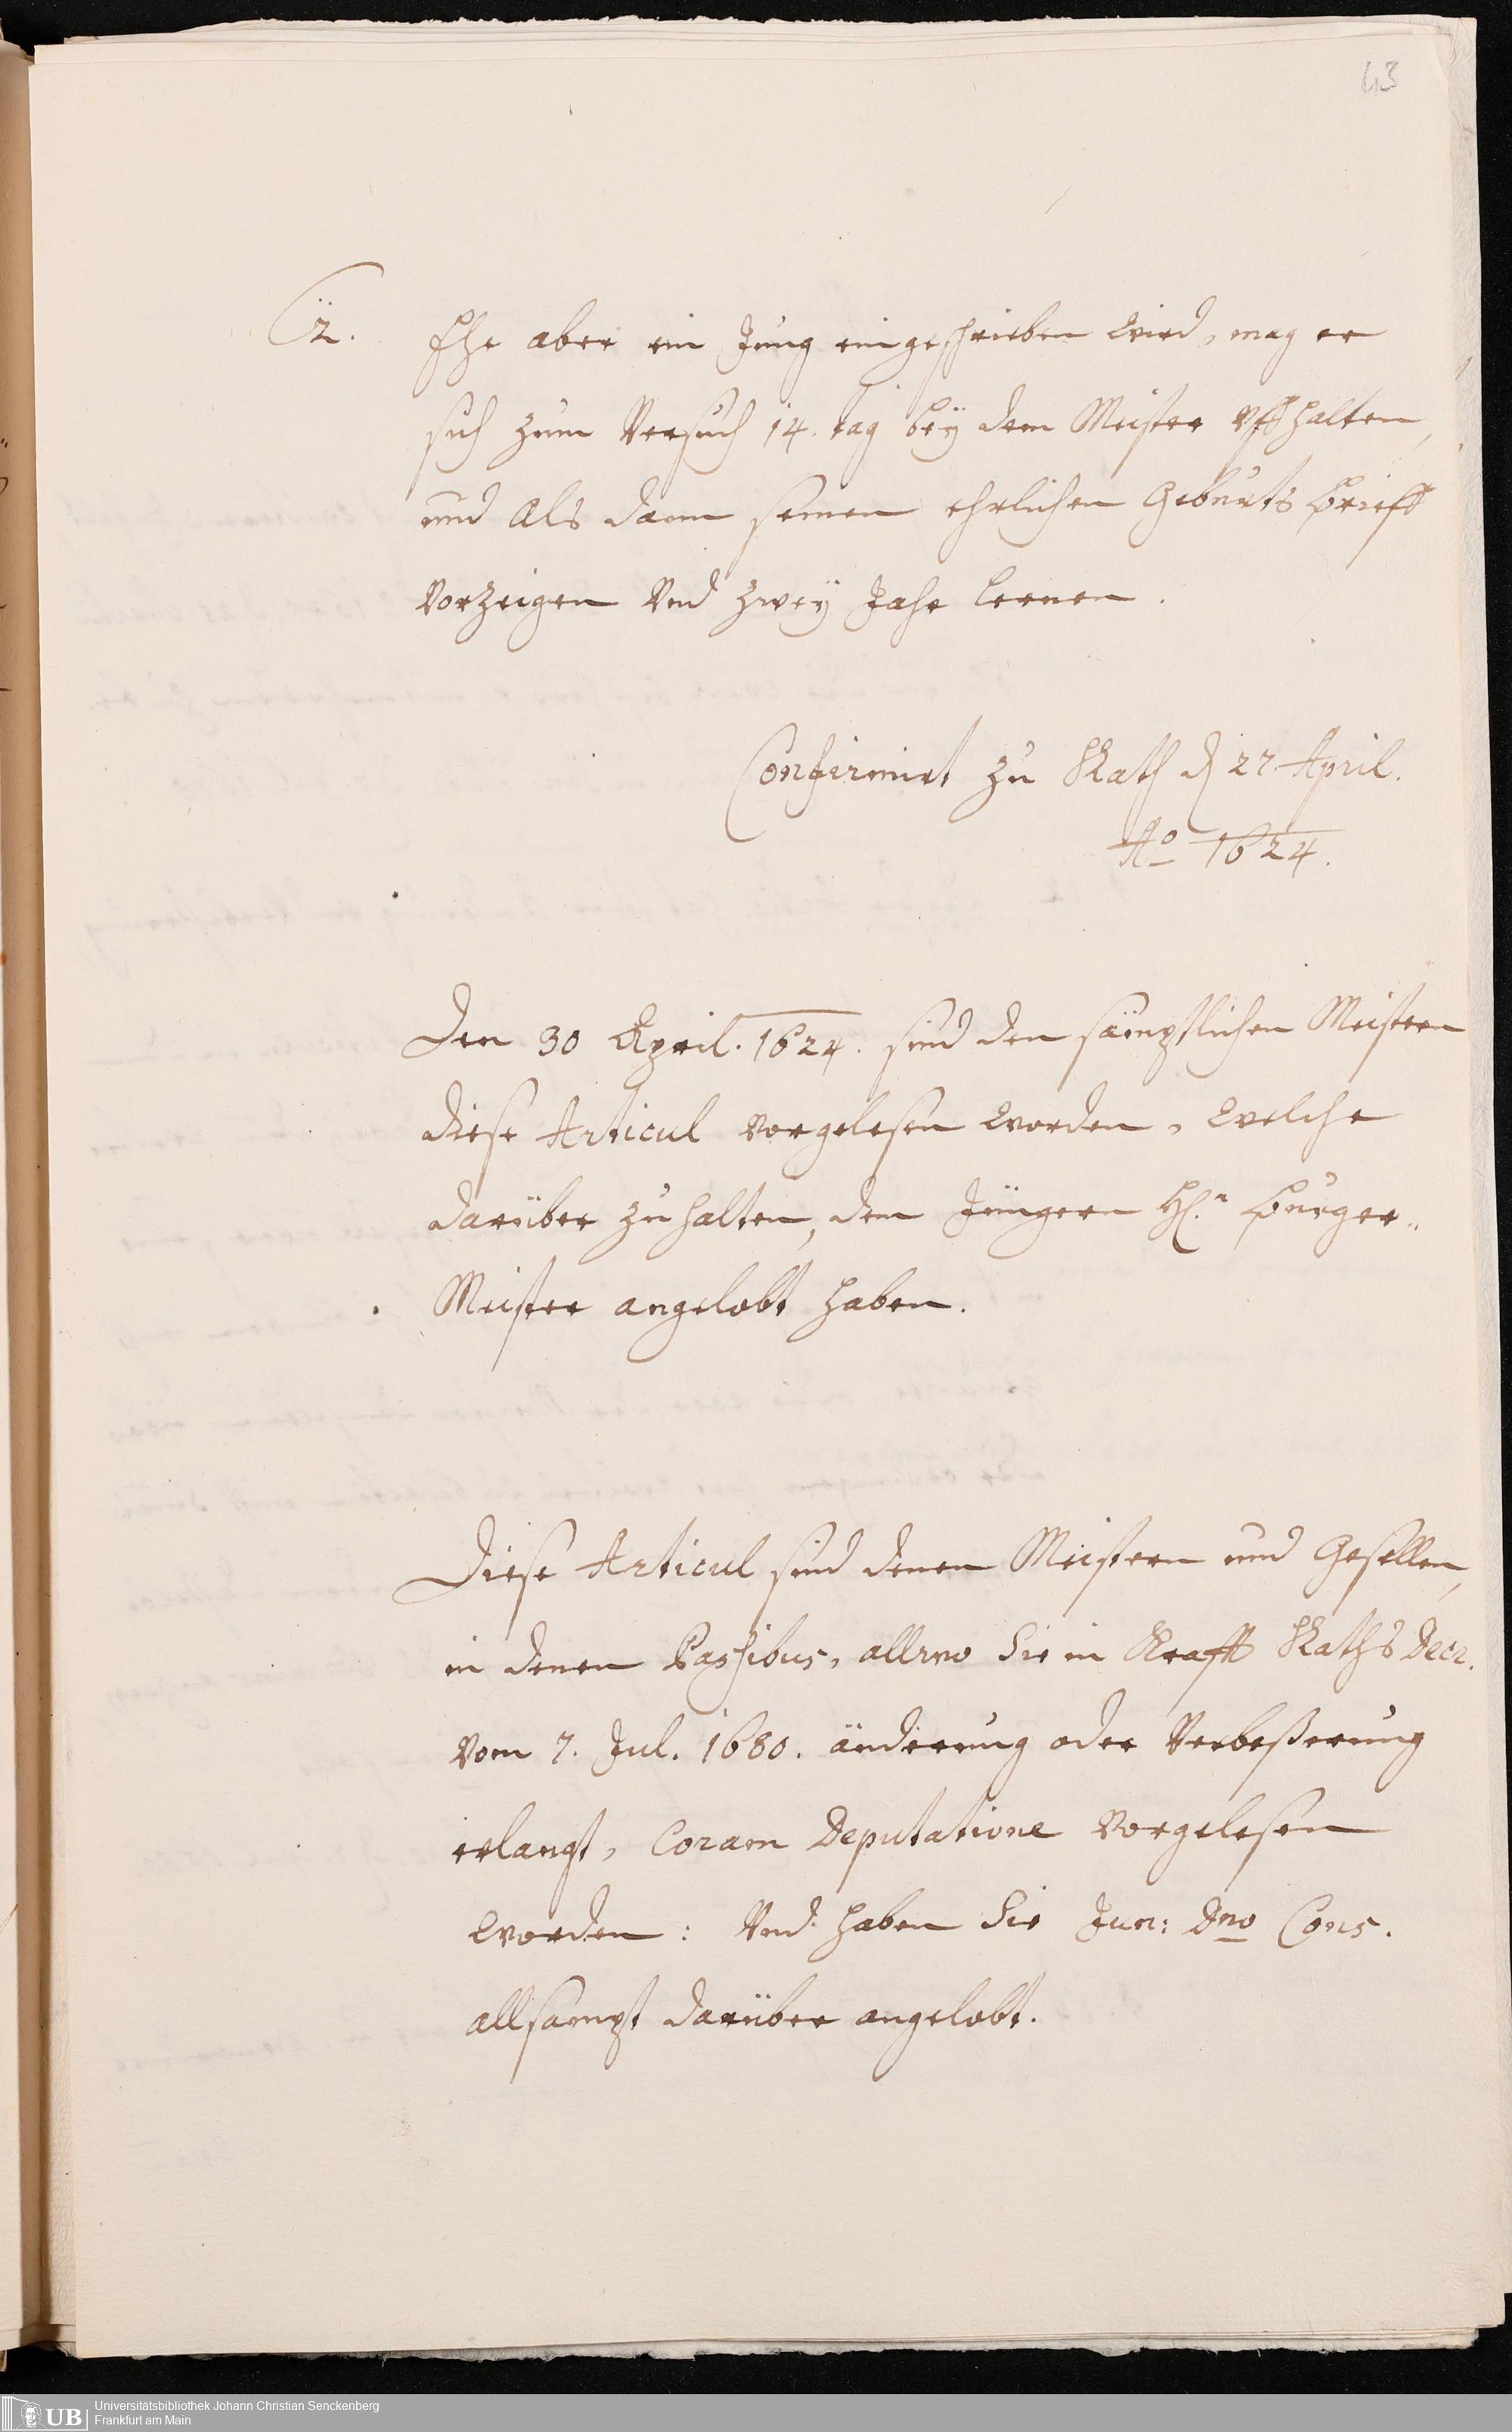 43
2. Ehe aber ein Jung eingeschrieben wird, mag er
sich zum Versuch 14. tag beÿ dem Meister vffhalten,
und als dann seinen ehrlichen Geburts brieff
vorzeigen Vnd zweÿ Jahr lernen.
Confirmirt zu Rath d 27 April.
Ao 1624.
Den 30 April. 1624. sind den sämptlichen Meistern
diese Articul vorgelesen worden, welche
darüber zuhalten, dem Jüngern H. Burger„
Meister angelobt haben.
Diese Articul sind denen Meistern und Gesellen,
in denen Passibus, allwo Sie in Krafft Raths Decr.
vom 7. Jul. 1680. änderung oder Verbeßerung
erlangt, Coram Deputatione Vorgelesen
worden: Vnd haben Sie Jun: Dno Cons.
allsampt darüber angelobt.
UB
Universitätsbibliothek Johann Christian Senckenberg
Frankfurt am Main